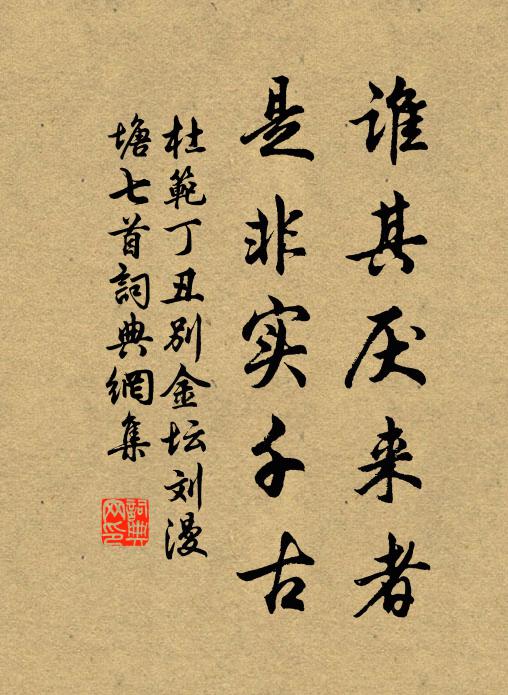 谁其厌来者
是非实千古
杜範丁丑别金坛刘漫
塘七首詞典網集
詞典网印